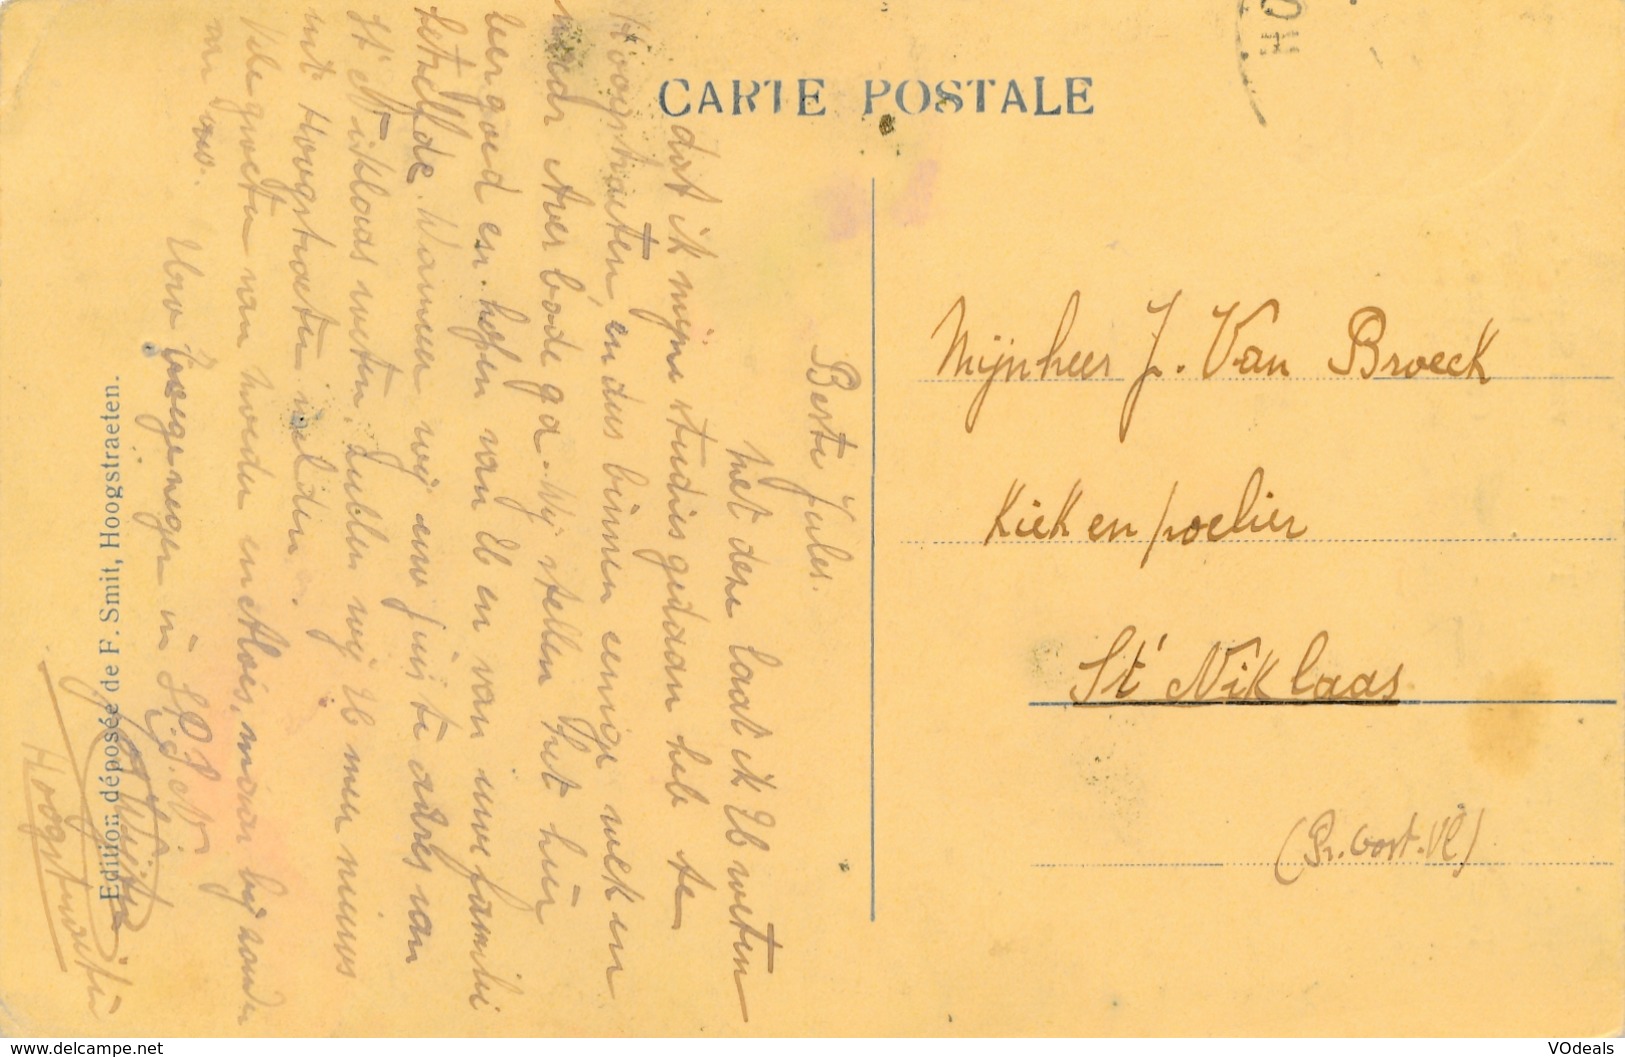 CARTE POSTALE
Beste Jules.
Met deze laat ik Ub weten
dat ik mijne studies gedaan heb te
Hoogstraeten en dus binnen eenige weken
naar Averbode ga. Wij stellen het hier
zeer goed en hopen van Ub en van uwe familie
hetzelfde. Wanneer wij uw juist adres van
St Niklaas weten, zullen wij Ub meer nieuws
uit Hoogstraeten melden.
Vele groeten van moeder en Alois, maar bijzonder
van
Uwe toegenegen in
Hoogstraeten
Edition déposée de F. Smit, Hoogstraeten.
HO
Mijnheer J. Van Broeck
Kiekenpoelier
St Niklaas
(Pr. Oost-Vl)
www.delcampe.net
VOdeals